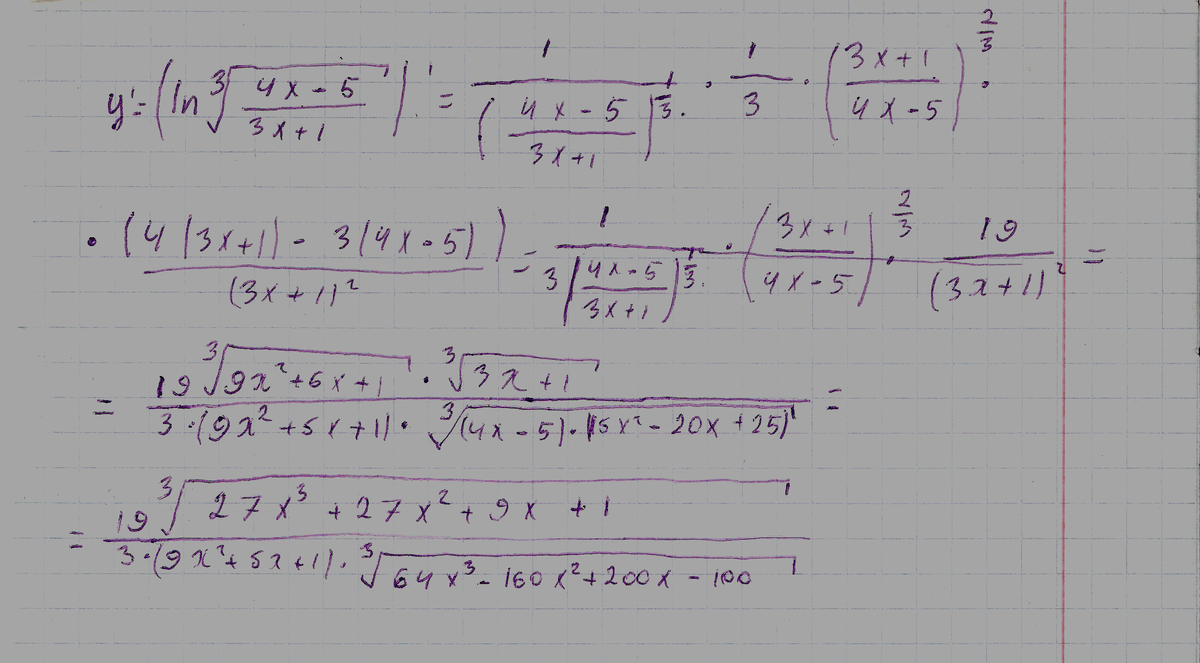 y' = (ln ∛((4x - 5)/(3x + 1)))' = 1/((4x - 5)/(3x + 1))^(1/3) · 1/3 · ((3x + 1)/(4x - 5))^(2/3) ·
· (4(3x+1) - 3(4x - 5))/(3x + 1)² = 1/(3((4x - 5)/(3x + 1))^(1/3)) · ((3x + 1)/(4x - 5))^(2/3) · 19/(3x + 1)² =
= (19 ∛(9x² + 6x + 1) · ∛(3x + 1))/(3 · (9x² + 5x + 1) · ∛((4x - 5) · (15x² - 20x + 25))) =
= (19 ∛(27x³ + 27x² + 9x + 1))/(3 · (9x² + 5x + 1) · ∛(64x³ - 160x² + 200x - 100))